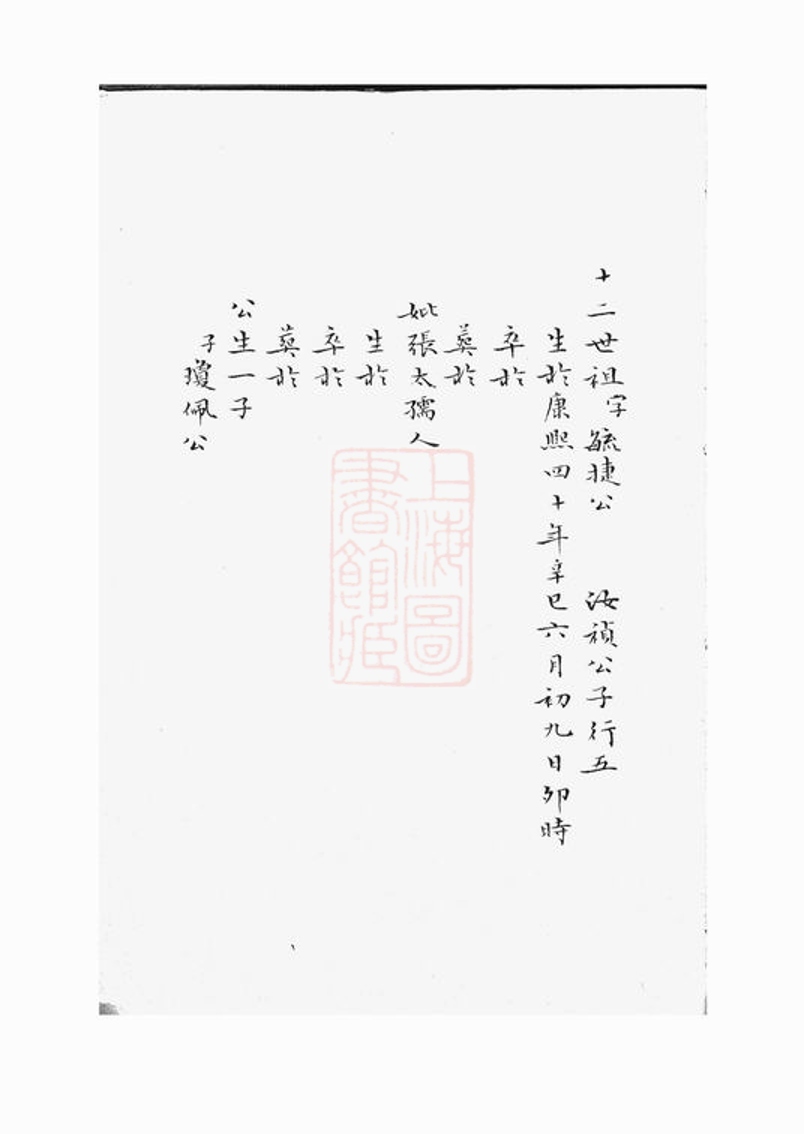 十二世祖字毓捷公 汝禎公子行五
生於康熙四十年辛巳六月初九日卯時
卒於
葬於
妣張太孺人
生於
卒於
葬於
公生一子
子瓊佩公
上海圖
書館藏